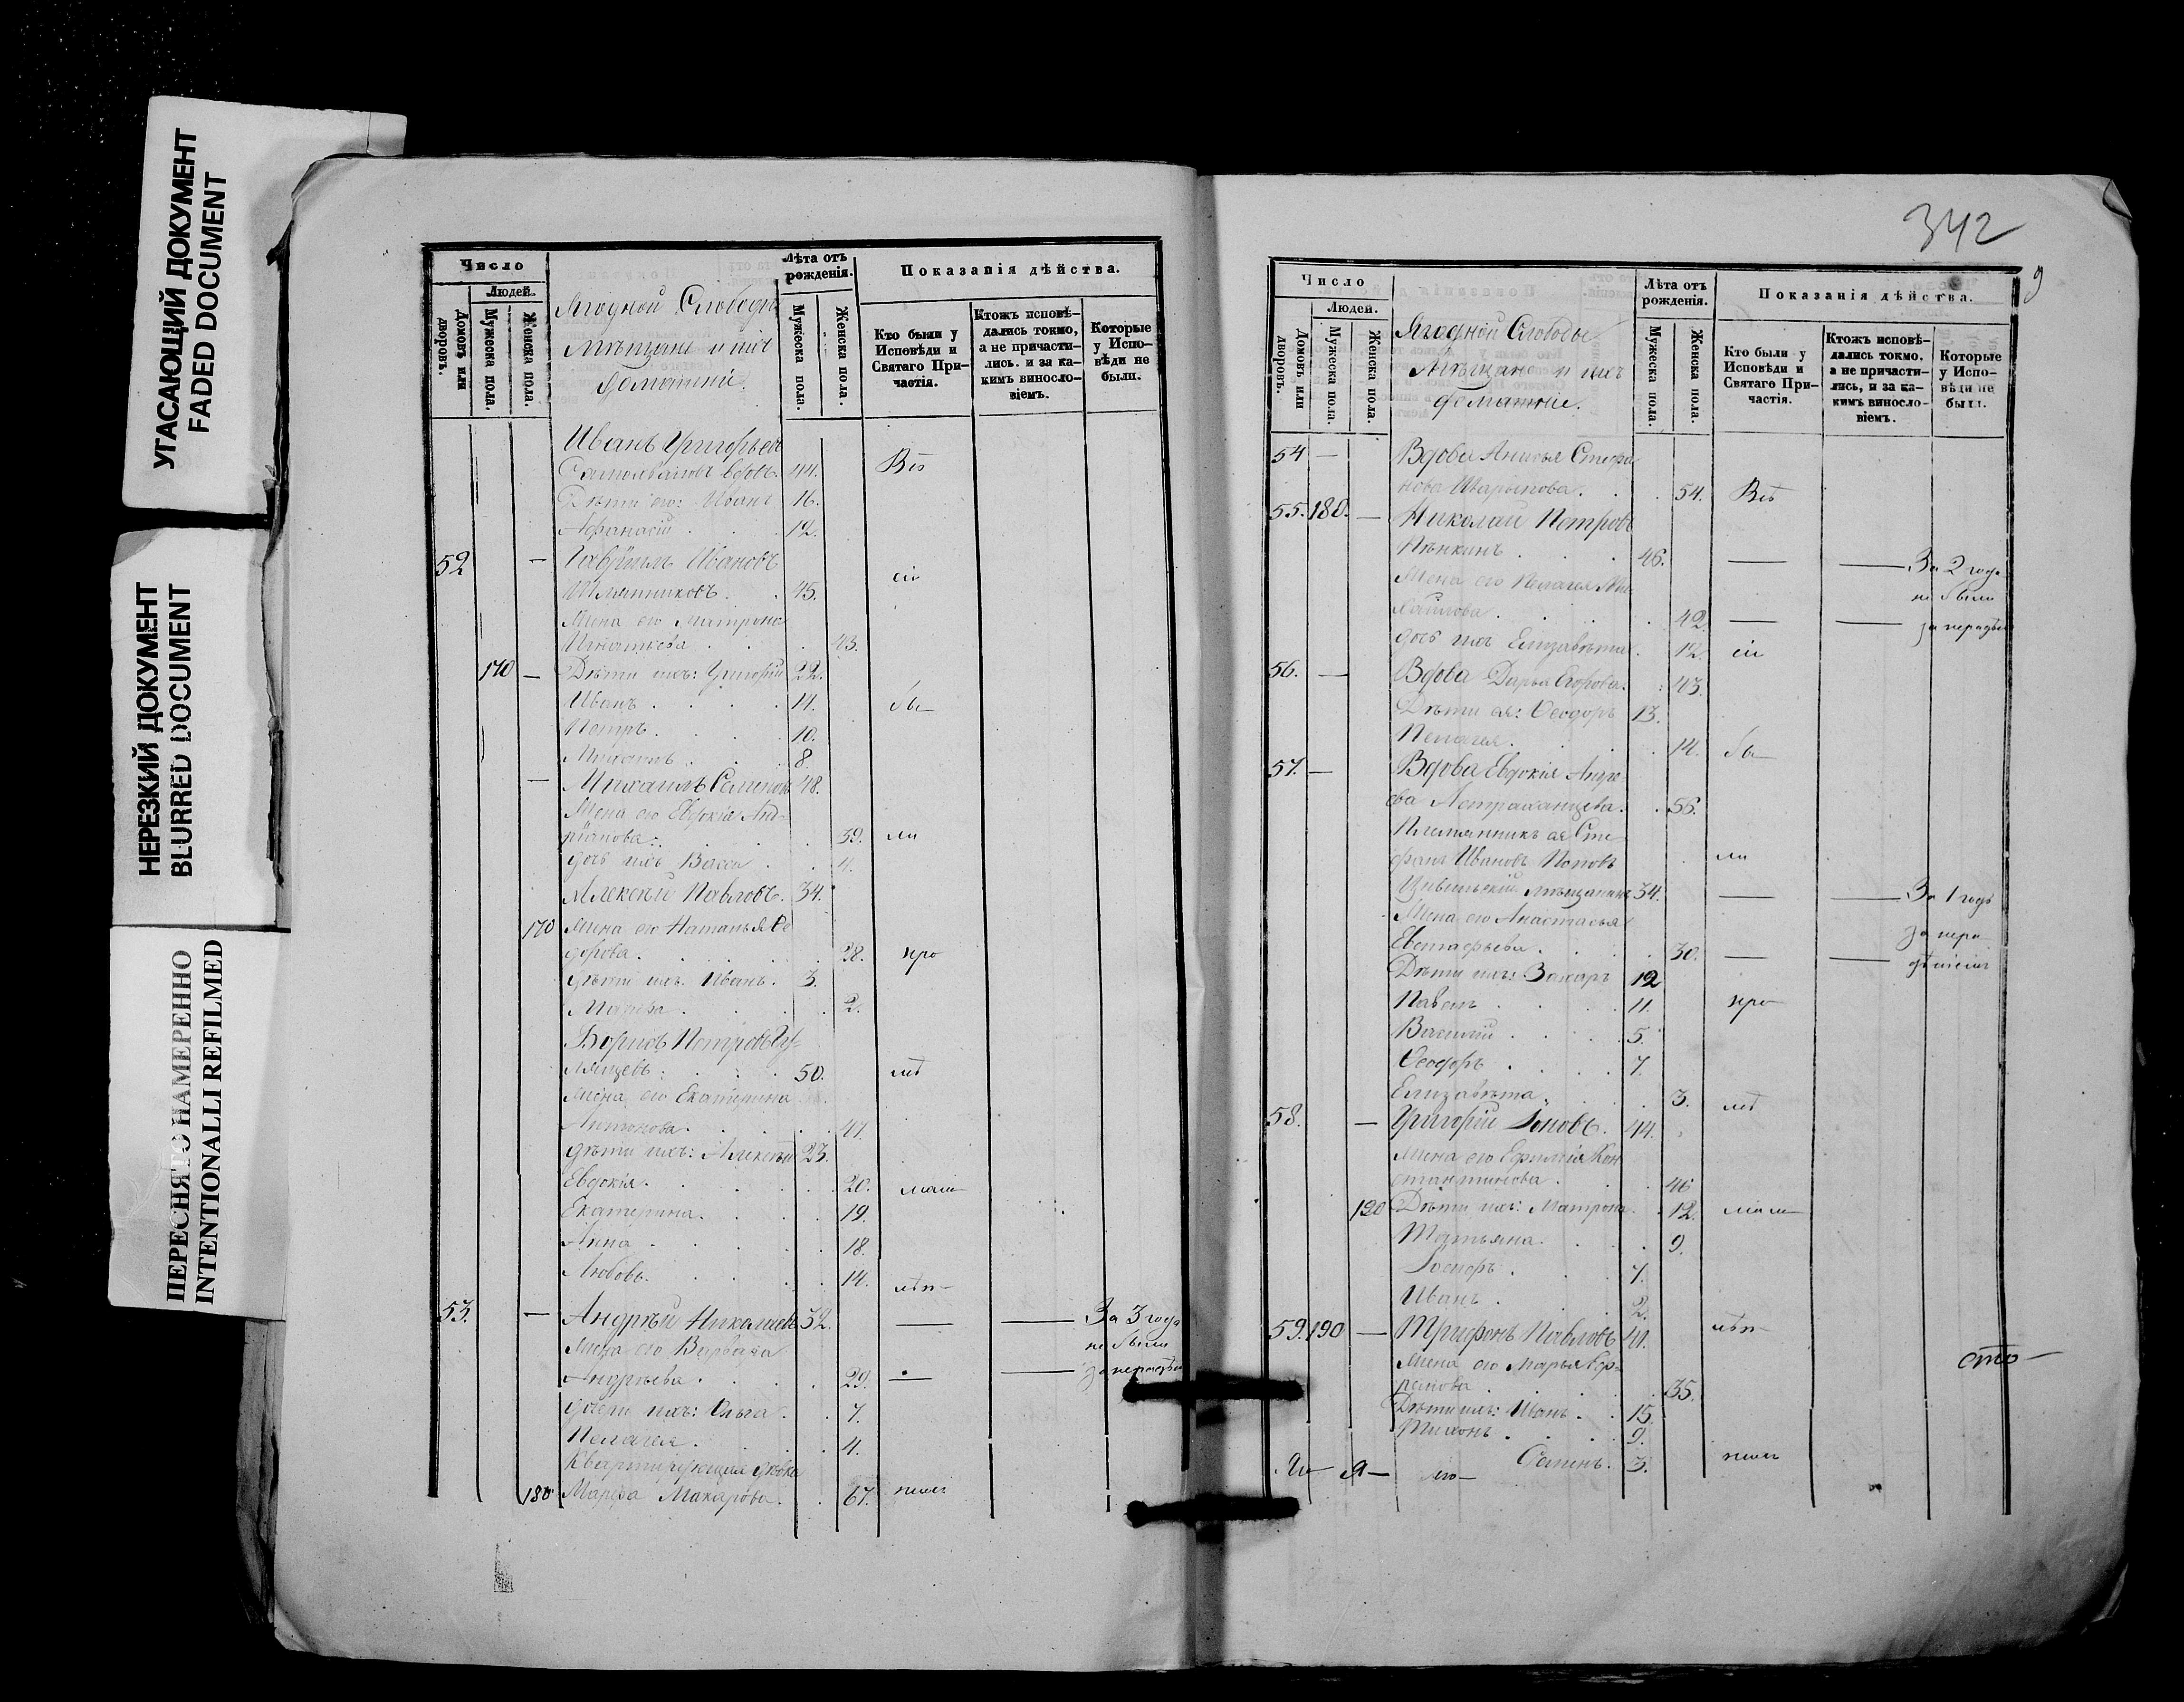 УГАСАЮЩИЙ ДОКУМЕНТ
FADED DOCUMENT
НЕРЕЗКИЙ ДОКУМЕНТ
BLURRED DOCUMENT
ПЕРЕСНЯТО НАМЕРЕННО
INTENTIONALLI REFILMED
Число
Людей.
Домовъ или дворовъ.
Мужеска пола.
Женска пола.
Ягодной Слободы
Мѣщане и ихъ
домашніе.
Лѣта отъ рожденія.
Мужеска пола.
Женска пола.
Показанія дѣйства.
Кто были у Исповѣди и Святаго Причастія.
Ктожъ исповѣдались токмо, а не причастились. и за какимъ винословіемъ.
Которые у Исповѣди не были.
Иванъ Григорьевъ
вдовъ 44. Всѣ
Дѣти его: Иванъ 16.
Афанасій 12.
52 — Гавріилъ Ивановъ
45. сіи
Жена его Матрона
Игнатьева 43.
170 — Дѣти ихъ: Григорій 22.
Иванъ 14. бы—
Петръ 10.
Михаилъ 8.
— Михаилъ Семеновъ 48.
Жена его Евдокія Анд-
ріанова 39. ли
дочь ихъ Васса 4.
Алексѣй Павловъ. 34.
170 Жена его Наталья Ѳе
дорова 28. про
дѣти ихъ. Иванъ. 3.
Марѳа 2.
Борисъ Петровъ
50.
Жена его Екатерина
Антонова 47.
дѣти ихъ: Алексѣй 23.
Евдокія 20.
Екатерина. 19.
Анна 18.
Любовь. 14.
53. — Андрей Николаевъ 32. — — За 3 года
Жена его Варвара не были
Андреева 29. — — за нерадѣн
дочери ихъ: Ольга. 7.
Пелагея 4.
Квартирующая дѣвка
180 Марѳа Макарова. 67.
342
9
Число
Людей.
Домовъ или дворовъ.
Мужеска пола.
Женска пола.
Ягодной Слободы
Мѣщане и ихъ
домашніе.
Лѣта отъ рожденія.
Мужеска пола.
Женска пола.
Показанія дѣйства.
Кто были у Исповѣди и Святаго Причастія.
Ктожъ исповѣдались токмо. а не причастились, и за какимъ винословіемъ.
Которые у Исповѣди не были.
54 — Вдова Анисья Стефа
нова 54. Всѣ
55. 180. — Николай Петровъ
Пѣнкинъ 46. — — За 2 года
Жена его Пелагея Ми не были
хайлова 42. — — за нерадѣн
дочь ихъ Елизавета. 12. сіи
56. — Вдова Дарья Егорова. 43.
Дѣти ея: Ѳеодоръ 13.
Пелагея. 14. бы—
57. — Вдова Евдокія Андре-
ева Астраханцева. 56.
Племянникъ ея Сте-
фанъ Ивановъ Поповъ ли
Цивильскій мѣщанинъ 34. — — За 1 годъ
Жена его Анастасья за нера
Евстафьева. 30. — — дѣніемъ
Дѣти ихъ: Захаръ 12
Павелъ 11. про
Василій 5.
Ѳеодоръ 7.
Елизавета. 3.
58. — Григорій Іоновъ. 44.
Жена его Ефимія Кон
стантинова 46
120 Дѣти ихъ: Матрона. 12.
Татьяна. 9.
7.
Иванъ 2.
59. 190 — Трифонъ Павловъ 41.
Жена его Марья
35.
Дѣти ихъ: Иванъ. 15.
Тихонъ 9.
Семенъ. 3.
сто—